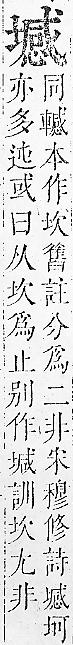 㙳
同轗本作坎舊註分為二非宋穆修詩㙳坷
亦多迍或曰从坎為止別作堿訓坎尤非